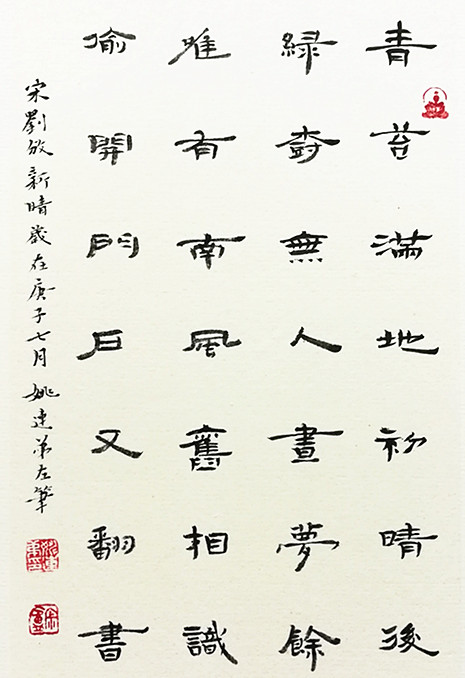 青苔滿地初晴後
綠樹無人晝夢餘
唯有南風舊相識
偷開門戶又翻書
宋劉攽新晴歲在庚子七月姚弟左筆